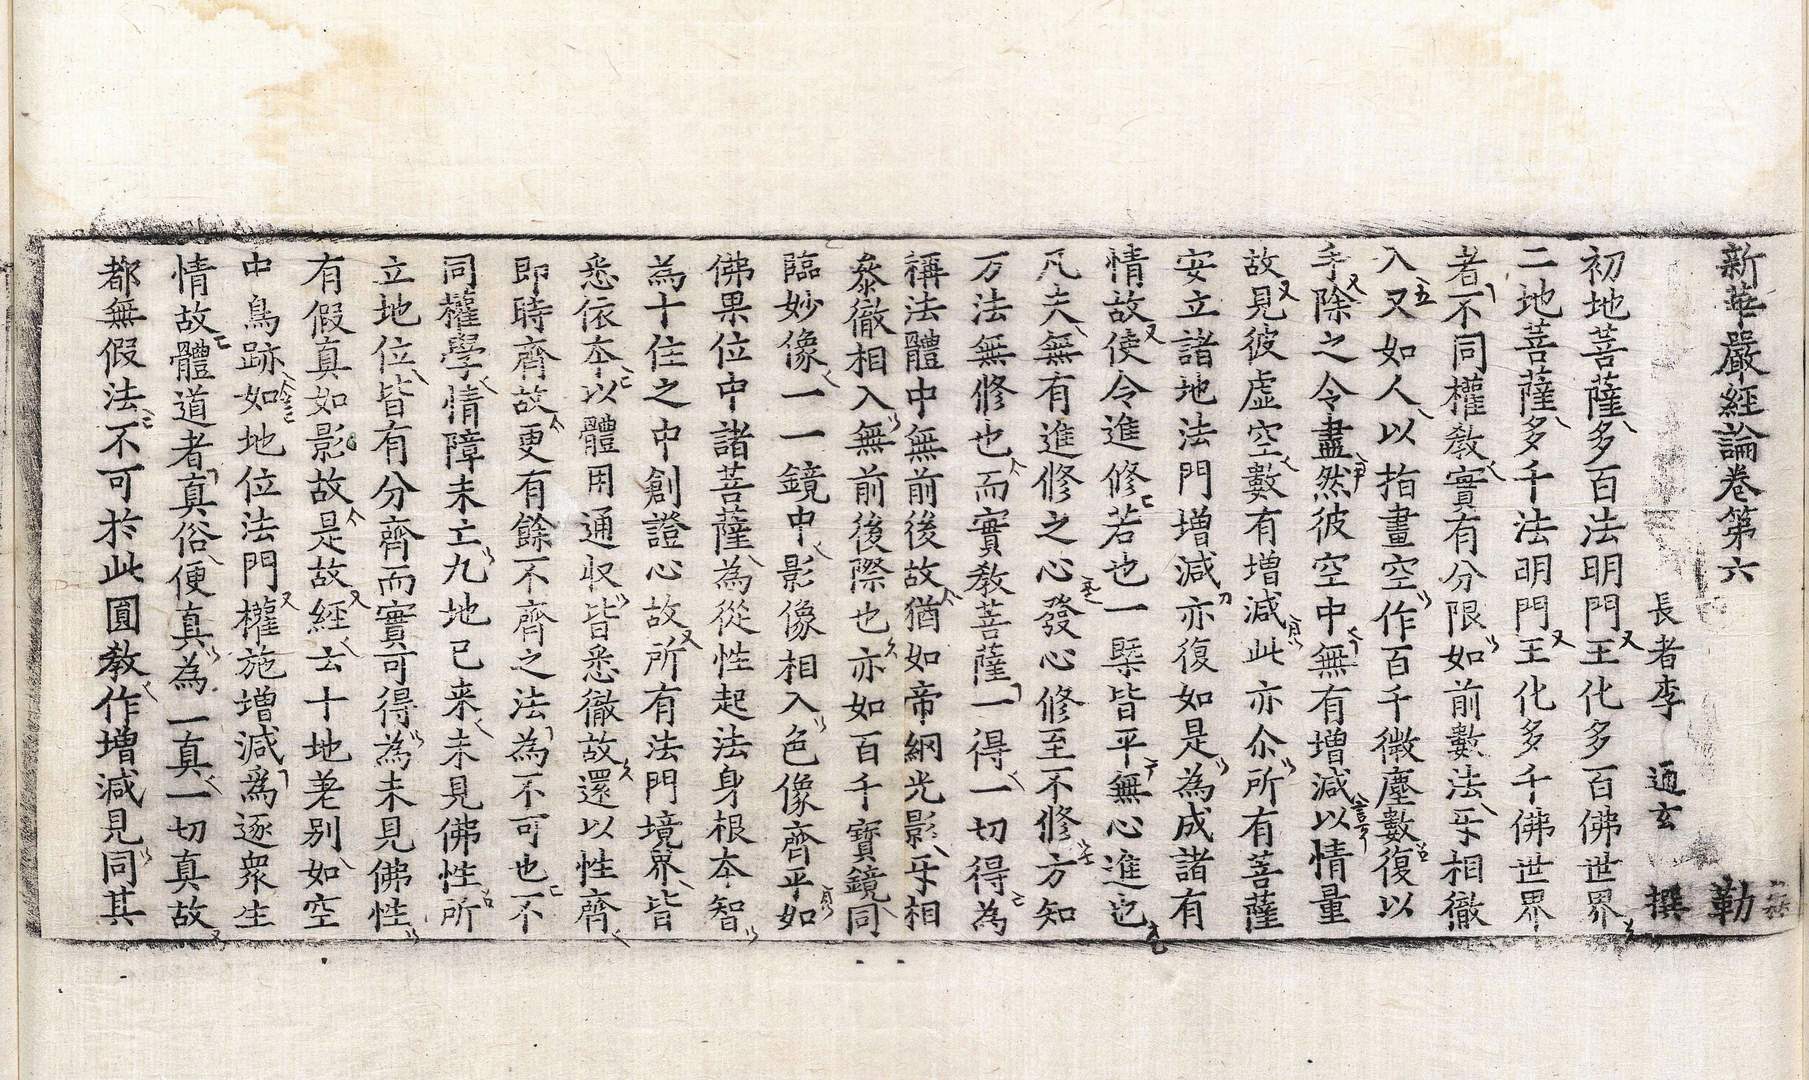 新華嚴經論卷第六　勒
長者李　通玄　撰
初地菩薩多百法明門王化多百佛世界
二地菩薩多千法明門王化多千佛世界
者不同權教實有分限如前數法㸦相徹
入又如人以指畫空作百千微塵數復以
手除之令盡然彼空中無有增減以情量
故見彼虛空數有增減此亦尒所有菩薩
安立諸地法門增減亦復如是為成諸有
情故使令進修若也一槩皆平無心進也
凡夫無有進修之心發心修至不修方知
万法無修也而實教菩薩一得一切得為
稱法體中無前後故猶如帝網光影㸦相
叅徹相入無前後際也亦如百千寶鏡同
臨妙像一一鏡中影像相入色像齊平如
佛果位中諸菩薩為從性起法身根本智
為十住之中創證心故所有法門境界皆
悉依夲以體用通収皆悉徹故還以性齊
即時齊故更有餘不齊之法為不可也不
同權學情障未亡九地已来未見佛性所
立地位皆有分齊而實可得為未見佛性
有假真如影故是故經云十地差别如空
中鳥跡如地位法門權施增減為逐衆生
情故體道者真俗便真為一真一切真故
都無假法不可於此圓教作增減見同其